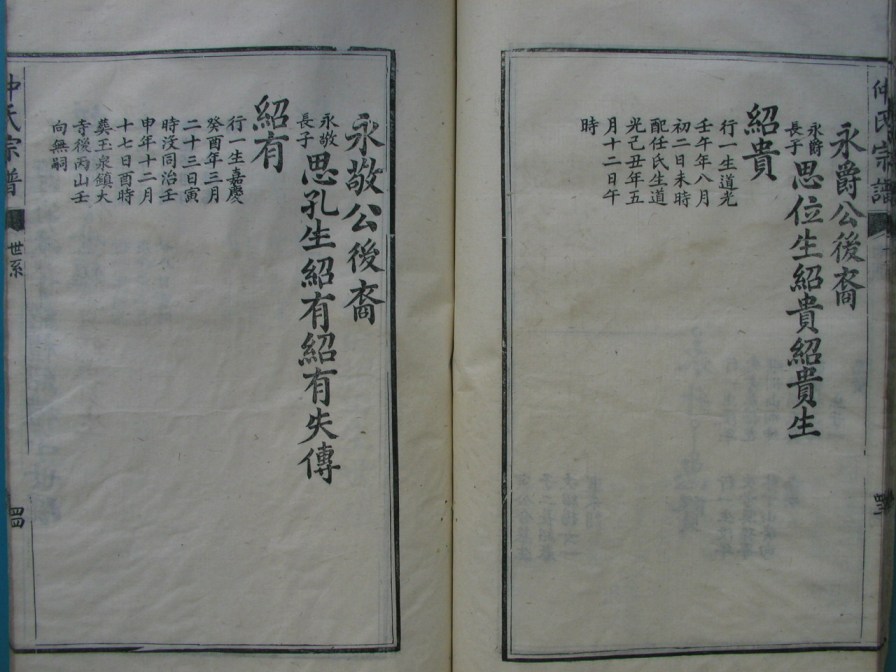 仲氏宗譜
永爵公後裔
永爵
長子
思位生紹貴紹貴生
紹貴
行一生道光
壬午年八月
初二日未時
配任氏生道
光己丑年五
月十二日午
時
永敬公後裔
永敬
長子
思孔生紹有紹有失傳
紹有
行一生嘉慶
癸酉年三月
二十三日寅
時沒同治壬
申年十二月
十七日酉時
葬玉泉鎮大
寺後丙山壬
向無嗣
仲氏宗譜
世系
四四